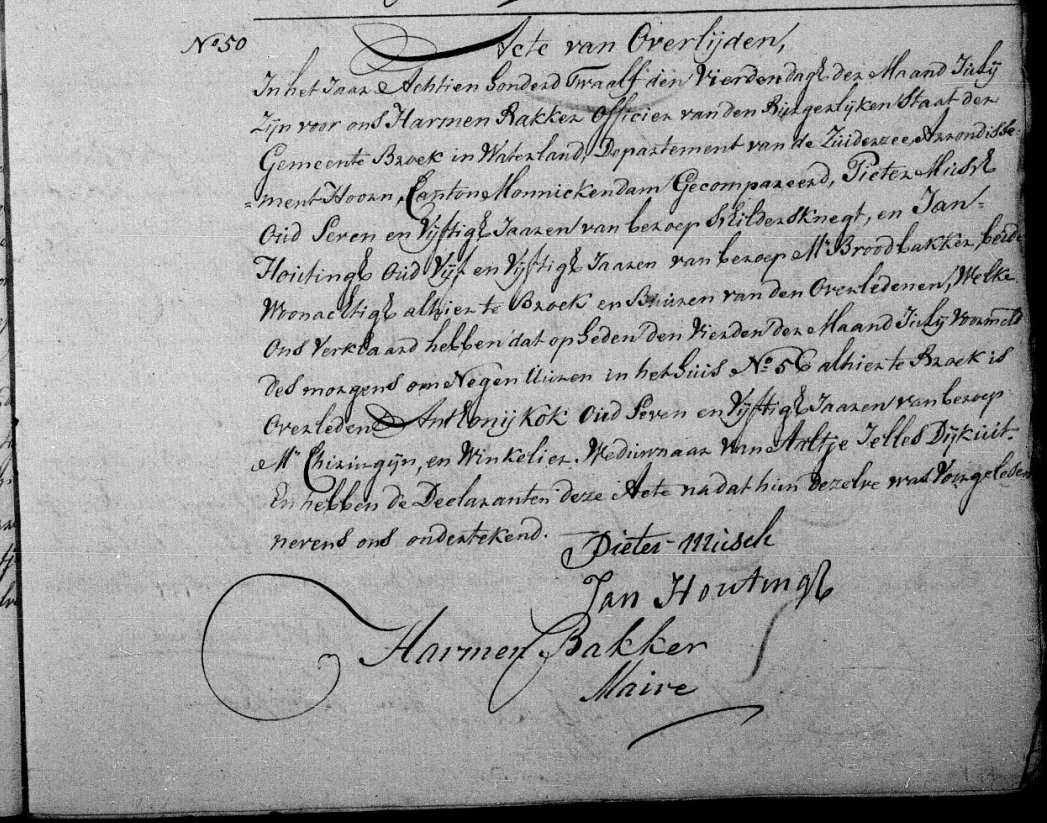 No 50
Acte van Overlijden,
In het Jaar Achtien honderd Twaalf den Vierden dag der Maand July
Zijn voor ons Harmen Bakker Officier van den Burgerlyken Staat der
Gemeente Broek in Waterland, Departement van de Zuiderzee, Arrondisse
=ment Hoorn, Canton Monnickendam Gecompareerd, Pieter Musch
Oud Seven en Vyftig Jaaren van beroep Schildersknegt, en Jan
Houting Oud Vyf en Vyftig Jaaren van beroep Mr Broodbakker, beide
Woonachtig alhier te Broek en Buuren van den Overledenen, Welke
Ons Verklaard hebben dat op heden den Vierden der Maand July voormeld
Des morgens om Negen Uuren in het huis No 56 alhier te Broek is
Overleden Anthonij Kok Oud Seven en Vyftig Jaaren van beroep
Mr Chirurgyn, en Winkelier. Weduwnaar van Aaltje Jelles Dykuit.
En hebben de Declaranten deze Acte na dat hun dezelve was Voorgelesen
nevens ons ondertekend.
Pieter Musch
Jan Houting
Harmen Bakker
Maire